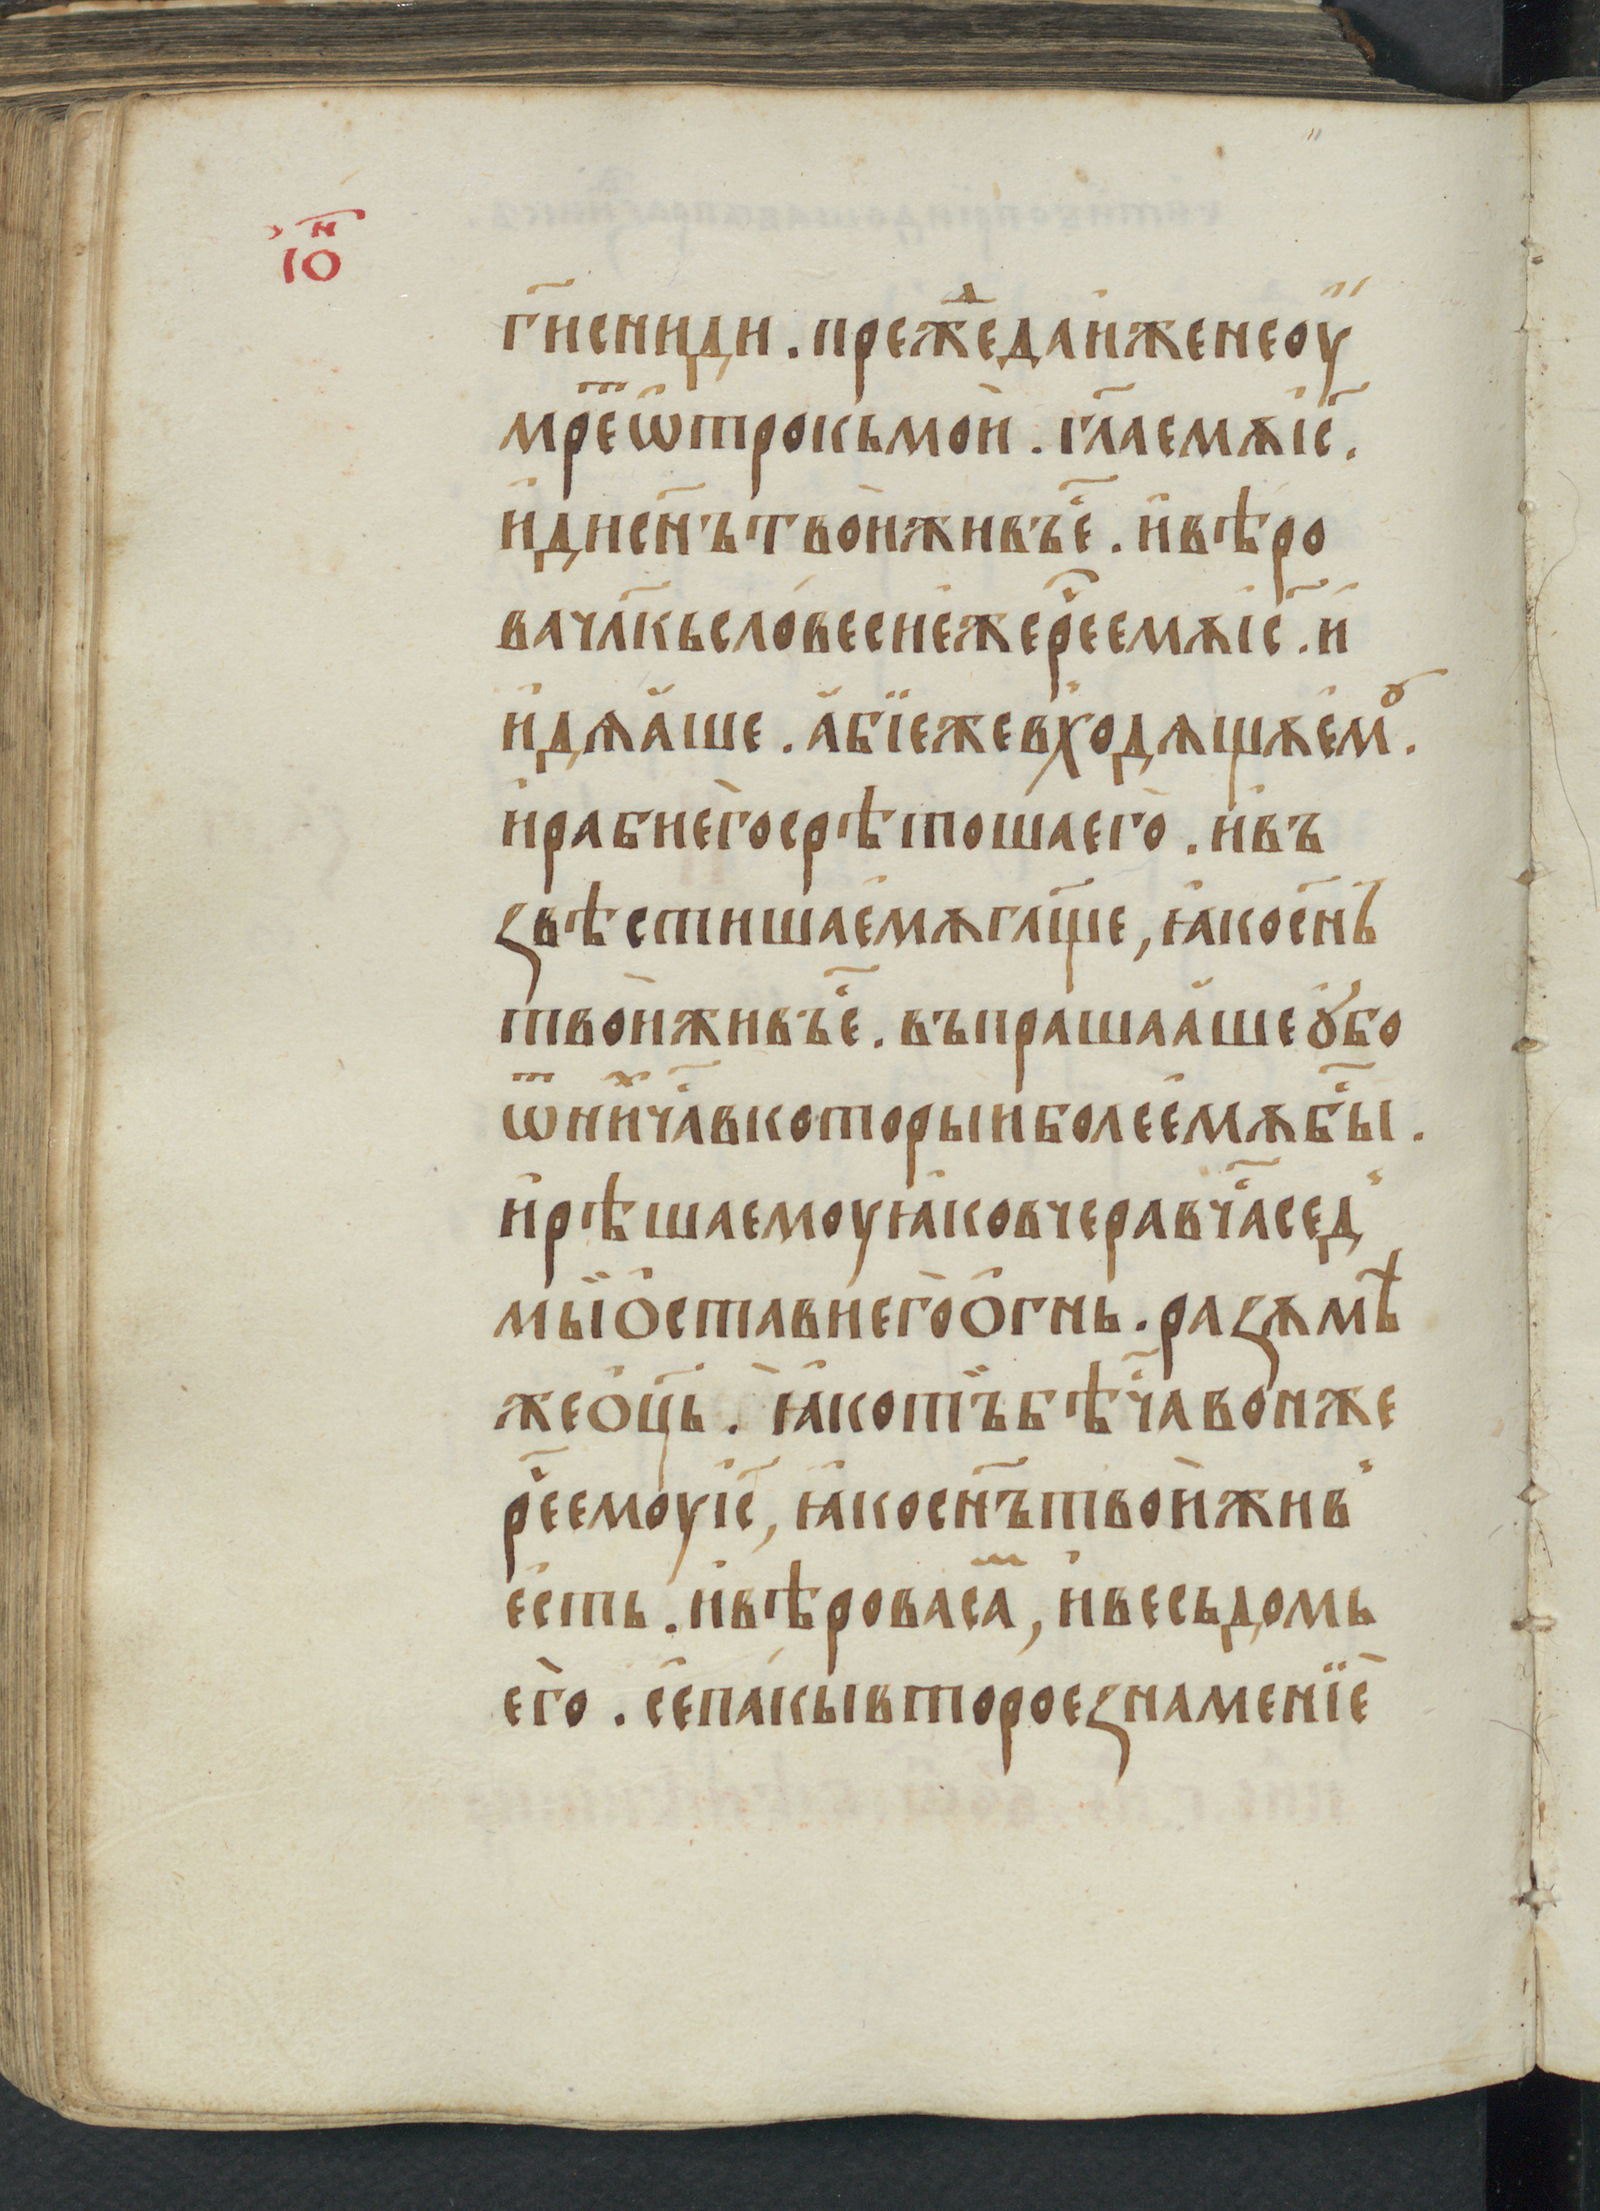 ю҃н
г҃и сниди . прежⷣе даи҆же не оу҆
мрⷮе ѡ҆трокь мои҆ . гл҃а емѫ і҆с҃ .
и҆ди сн҃ъ твои҆ живъ е҆с҃ . и҆ вѣро
ва чл҃кь словеси е҆же рⷱе емѫ і҆с҃ . и҆
и҆дѧа҆ше . а҆бїе же въходѧщѫ е҆мꙋ .
и҆ раби е҆го срѣтоша его҆ . и҆ въ
ꙁвѣстиша е҆мѫ гл҃ще , ꙗ҆ко сн҃ъ
твои҆ живъ е҆с҃ . въпрашаа҆ше ꙋ҆бо
ѿ ниⷯ чⷭа в которыи более҆ мѫ бⷭы .
и҆ рѣша емоу ꙗ҆ко вчера в чⷭа сед
мыї ѻ҆стави его ѻ҆гнь . раꙁѫмѣ
же ѻ҆ц҃ь . ꙗ҆ко тъ бѣ чⷭа во нже
рⷱе емоу і҆с҃ , ꙗ҆ко сн҃ъ твои҆ жив
е҆сть . и҆ вѣрова саⷨ , и҆ весь домь
его . се҆ пакы второе ꙁнаменїе